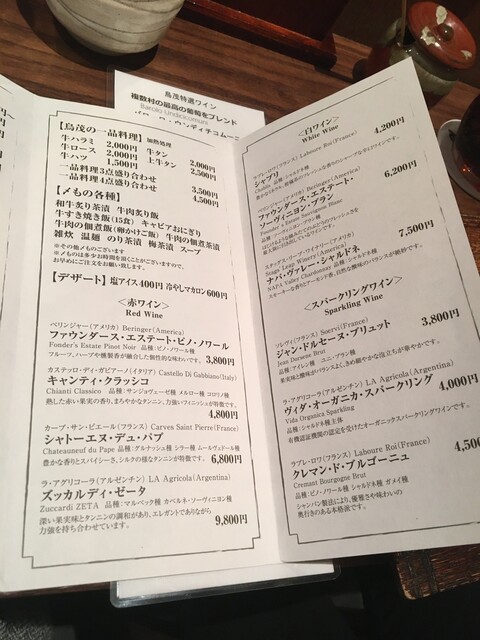 鳥茂特選ワイン
複数村の最高の葡萄をブレンド
Barolo Undicicomuni
【鳥茂の一品料理】 加熱処理
牛ハラミ 2,000円 牛タン 2,000円
牛ロース 2,000円 上牛タン 2,500円
牛ハツ 1,500円
一品料理3点盛り合わせ 3,500円
一品料理4点盛り合わせ 4,500円
【〆もの各種】
和牛炙り茶漬 牛肉炙り飯
牛すき焼き飯(15食) キャビアおにぎり
牛肉の佃煮飯(卵かけご飯) 牛肉の佃煮茶漬
雑炊 温麺 のり茶漬 梅茶漬 スープ
※その他〆ものございます
※〆ものは多少お時間を頂くことがございますので、
お早めにご注文をお願い致します。
【デザート】 塩アイス400円 冷やしマカロン600円
<赤ワイン>
Red Wine
ベリンジャー(アメリカ) Beringer(America)
ファウンダース・エステート・ピノ・ノワール
Fonder's Estate Pinot Noir 品種:ピノ・ノワール種
フルーツ、ハーブや燻製香が融合した個性的な味わいです。 3,800円
カステッロ・ディ・ガビアーノ(イタリア) Castello Di Gabbiano(Italy)
キャンティ・クラッシコ
Chianti Classico 品種:サンジョヴェーゼ種 メルロー種 コロリノ種
熟した赤い果実の香り、まろやかなタンニン、力強いフィニッシュが特徴です。
4,800円
カーブ・サン・ピエール(フランス) Carves Saint Pierre(France)
シャトーエヌ・デュ・パプ
Chateauneuf du Pape 品種:グルナッシュ種 シラー種 ムールヴェードル種
豊かな香りとスパイシーさ、シルクの様なタンニンが特徴です。 6,800円
ラ・アグリコーラ(アルゼンチン) LA Agricola(Argentina)
ズッカルディ・ゼータ
Zuccardi ZETA 品種:マルベック種 カベルネ・ソーヴィニヨン種
深い果実味とタンニンの調和があり、エレガントでありながら
力強を持ち合わせています。 9,800円
<白ワイン>
White Wine
ラブレ・ロワ(フランス) Laboure Roi(France)
シャブリ 4,200円
Chablis 品種:シャルドネ種
ベリンジャー(アメリカ) Beringer(America)
ファウンダース・エステート・ 6,200円
ソーヴィニヨン・ブラン
Founder's Estate Sauvignon Blanc
品種:ソーヴィニヨン・ブラン種
スタッグス・リープ・ワイナリー(アメリカ)
Stags' Leap Winery(America) 7,500円
ナパ・ヴァレー・シャルドネ
NAPA Valley Chardonnay 品種:シャルドネ種
スモーキーな香りとアーモンド香、自然な酸味のバランスが絶妙です。
<スパークリングワイン>
Sparkling Wine
ソレヴィ(フランス) Soervi(France)
ジャン・ドルセーヌ・ブリュット 3,800円
Jean Dorsene Brut
品種:アイレン種 ユニ・ブラン種
果実味と酸味がバランスよく、きめ細やかな泡立ちが華やかです。
ラ・アグリコーラ(アルゼンチン) LA Agricola(Argentina)
ヴィダ・オーガニカ・スパークリング 4,000円
Vida Organica Sparkling
品種:シャルドネ種主体
有機認証機関の認定を受けたオーガニックスパークリングワインです。
ラブレ・ロワ(フランス) Laboure Roi(France)
クレマン・ド・ブルゴーニュ 4,500
Cremant Bourgogne Brut
品種:ピノ・ノワール種 シャルドネ種 ガメイ種
シャンパン製法により、優雅さや味わいの
奥行きのある本格派です。